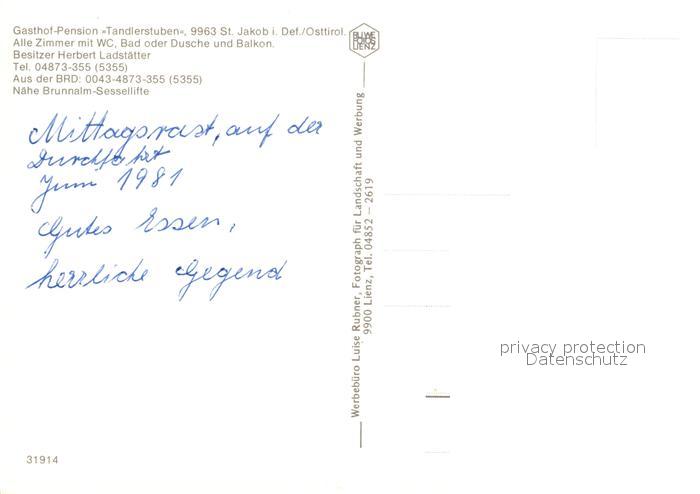 Gasthof-Pension »Tandlerstuben«, 9963 St. Jakob i. Def./Osttirol.
Alle Zimmer mit WC, Bad oder Dusche und Balkon.
Besitzer Herbert Ladstätter
Tel. 04873-355 (5355)
Aus der BRD: 0043-4873-355 (5355)
Nähe Brunnalm-Sessellifte
Mittagsrast, auf der
Durchfahrt
Juni 1981
Gutes Essen,
herrliche Gegend
31914
Werbebüro Luise Rubner, Fotograph für Landschaft und Werbung
9900 Lienz, Tel. 04852 – 2619
privacy protection
Datenschutz